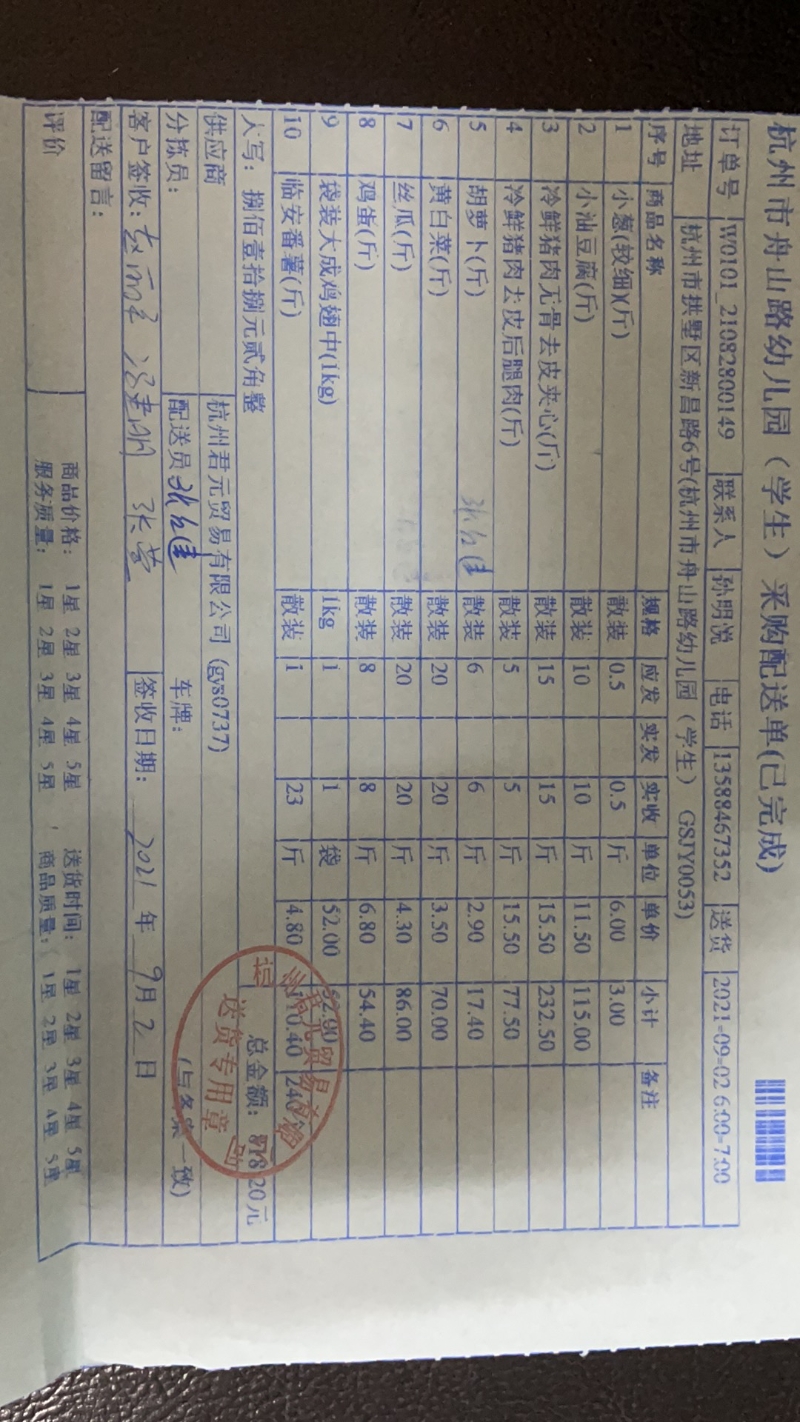 杭州市舟山路幼儿园（学生）采购配送单(已完成)
订单号 W0101_21082800149 联系人 孙明悦 电话 13588467352 送货 2021-09-02 6:00-7:00
地址 杭州市拱墅区新昌路6号(杭州市舟山路幼儿园（学生） GSJY0053)
序号 商品名称 规格 应发 实发 实收 单位 单价 小计 备注
1 小葱(较细)(斤) 散装 0.5 0.5 斤 6.00 3.00
2 小油豆腐(斤) 散装 10 10 斤 11.50 115.00
3 冷鲜猪肉无骨去皮夹心(斤) 散装 15 15 斤 15.50 232.50
4 冷鲜猪肉去皮后腿肉(斤) 散装 5 5 斤 15.50 77.50
5 胡萝卜(斤) 散装 6 6 斤 2.90 17.40
6 黄白菜(斤) 散装 20 20 斤 3.50 70.00
7 丝瓜(斤) 散装 20 20 斤 4.30 86.00
8 鸡蛋(斤) 散装 8 8 斤 6.80 54.40
9 袋装大成鸡翅中(1kg) 1kg 1 1 袋 52.00 52.00
10 临安番薯(斤) 散装 1 23 斤 4.80 110.40
大写： 捌佰壹拾捌元贰角整 总金额： 818.20元
供应商 杭州君元贸易有限公司 (gys0737)
分拣员： 配送员 车牌： (与各案一致)
客户签收: 张莹 签收日期： 2021 年 9月 2 日
配送留言：
评价 商品价格： 1星 2星 3星 4星 5星 ， 送货时间： 1星 2星 3星 4星 5星
服务质量： 1星 2星 3星 4星 5星 商品质量： 1星 2星 3星 4星 5星
送货专用章